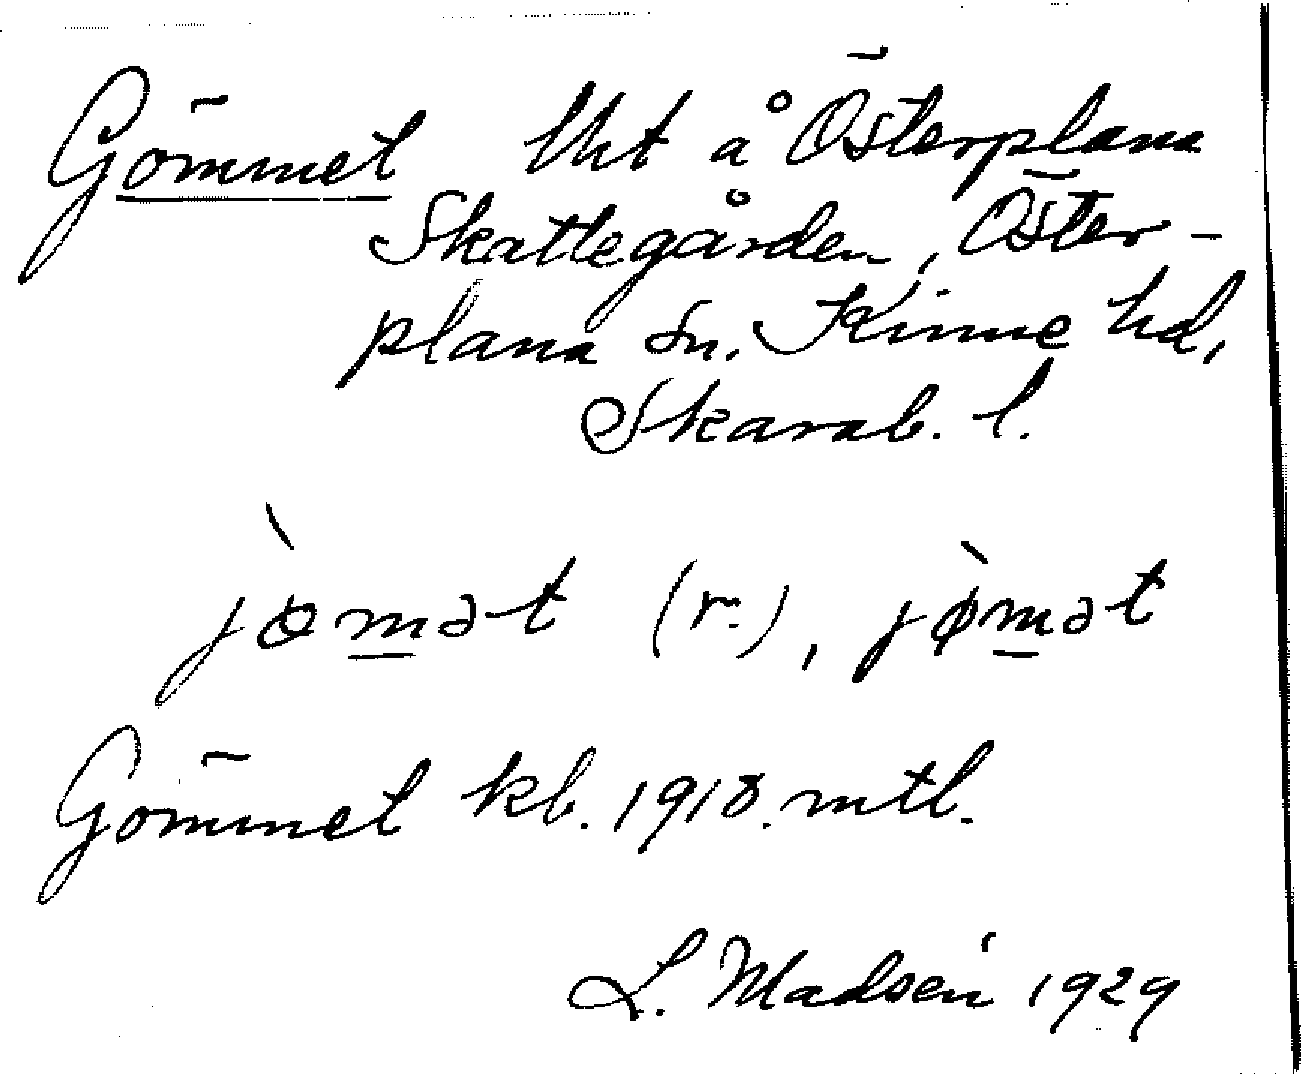 Gömmet lht å Österplana
Skattegården, Öster-
plana sn. Kinne hd,
Skarab. l.
jø̀mət (r.), jø̀mət
Gömmet kb. 1918. mtl.
L. Madsén 1929